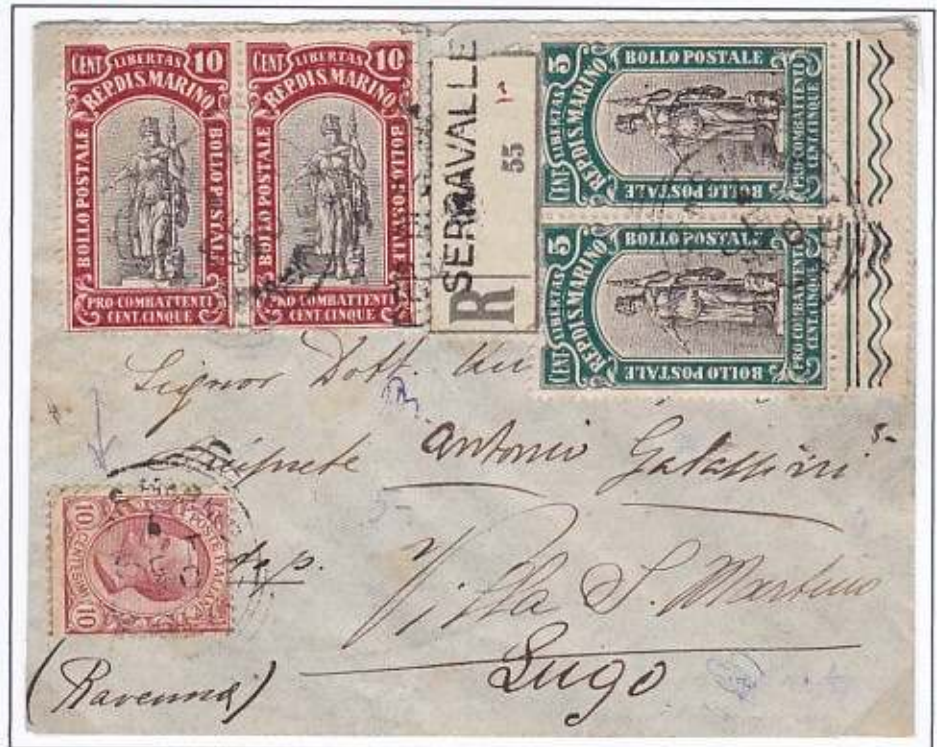 CENT. LIBERTAS 10
REP. DI S. MARINO
BOLLO POSTALE
BOLLO POSTALE
PRO COMBATTENTI
CENT. CINQUE
CENT. LIBERTAS 10
REP. DI S. MARINO
BOLLO POSTALE
BOLLO POSTALE
PRO COMBATTENTI
CENT. CINQUE
R
SERRAVALLE
55
CENT. LIBERTAS 5
REP. DI S. MARINO
BOLLO POSTALE
BOLLO POSTALE
PRO COMBATTENTI
CENT. CINQUE
CENT. LIBERTAS 5
REP. DI S. MARINO
BOLLO POSTALE
BOLLO POSTALE
PRO COMBATTENTI
CENT. CINQUE
Signor Dott.
Antonio Galassini
10 CENTESIMI 10
POSTE ITALIANE
Villa S. Martino
Lugo
(Ravenna)